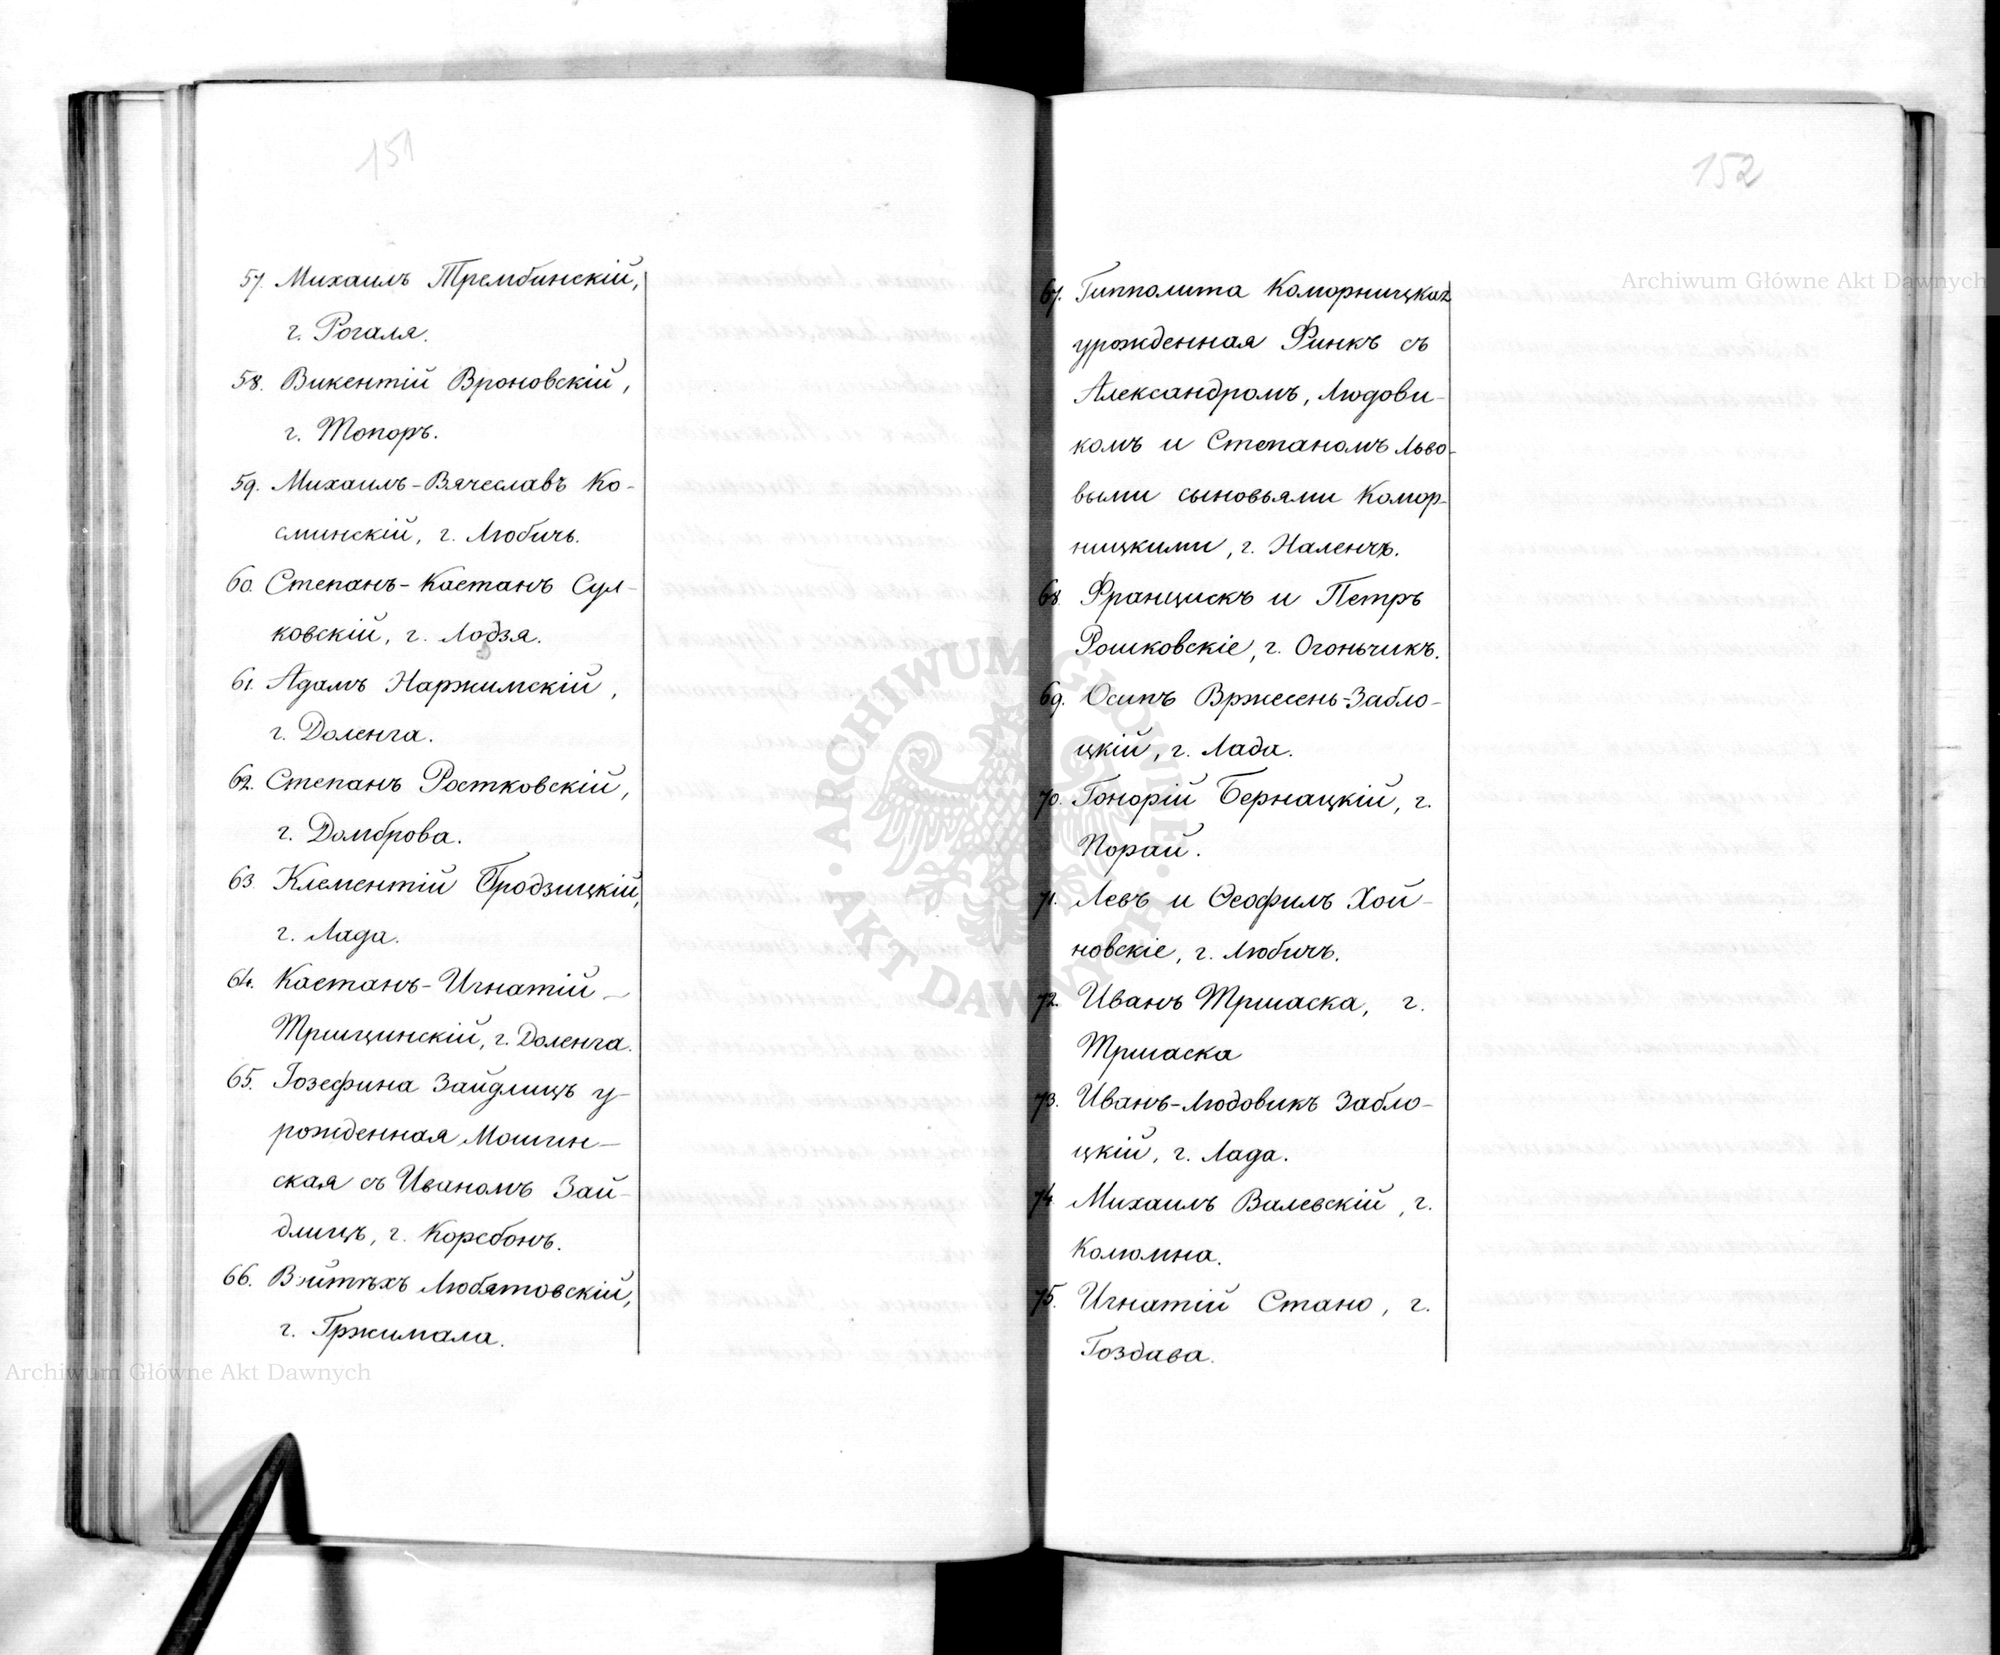 151
57. Михаилъ Трембинскій,
г. Рогаля.
58. Викентій Вроновскій,
г. Топоръ.
59. Михаилъ-Вячеславъ Ко-
сминскій, г. Любичъ.
60. Степанъ-Каетанъ Сул-
ковскій, г. Лодзя.
61. Адамъ Наржимскій,
г. Доленга.
62. Степанъ Ростковскій,
г. Домброва.
63. Клементій Гродзицкій,
г. Лада.
64. Каетанъ-Игнатій
Трщинскій, г. Доленга.
65. Іозефина Зайдлицъ у-
рожденная Мошин-
ская съ Иваномъ Зай-
длицъ, г. Корсбонъ.
66. Войтѣхъ Любятовскій,
г. Гржимала.
152
67. Гипполита Коморницкая
урожденная Финкъ съ
Александромъ, Людови-
комъ и Степаномъ Льво-
выми сыновьями Комор-
ницкими, г. Наленчъ.
68. Францискъ и Петръ
Рошковскіе, г. Огоньчикъ.
69. Осипъ Вржесень-Забло-
цкій, г. Лада.
70. Гонорій Бернацкій, г.
Порай.
71. Левъ и Ѳеофилъ Хой-
новскіе, г. Любичъ.
72. Иванъ Тршаска, г.
Тршаска
73. Иванъ-Людовикъ Забло-
цкій, г. Лада.
74. Михаилъ Валевскій, г.
Колюмна.
75. Игнатій Стано, г.
Гоздава.
Archiwum Główne Akt Dawnych
Archiwum Główne Akt Dawnych
ARCHIWUM GŁÓWNE AKT DAWNYCH